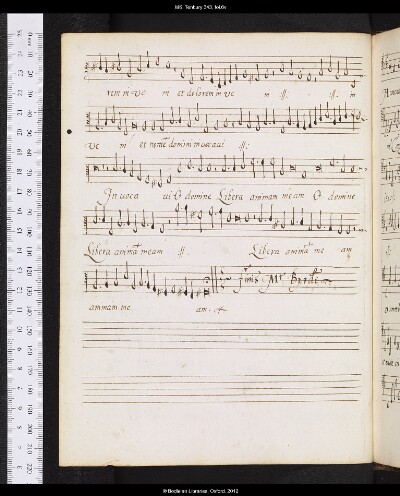 MS. Tenbury 343, fol.6v
rem in ve ni et dolorem in ve ni :||: :||: ni
ve ni et nome domini invocavi :||:
Invoca vi O domine Libera animam meam O domine
Libera animā meam :||: Libera animā me am
animam me am.
finis Mr Birde
© Bodleian Libraries, Oxford, 2010